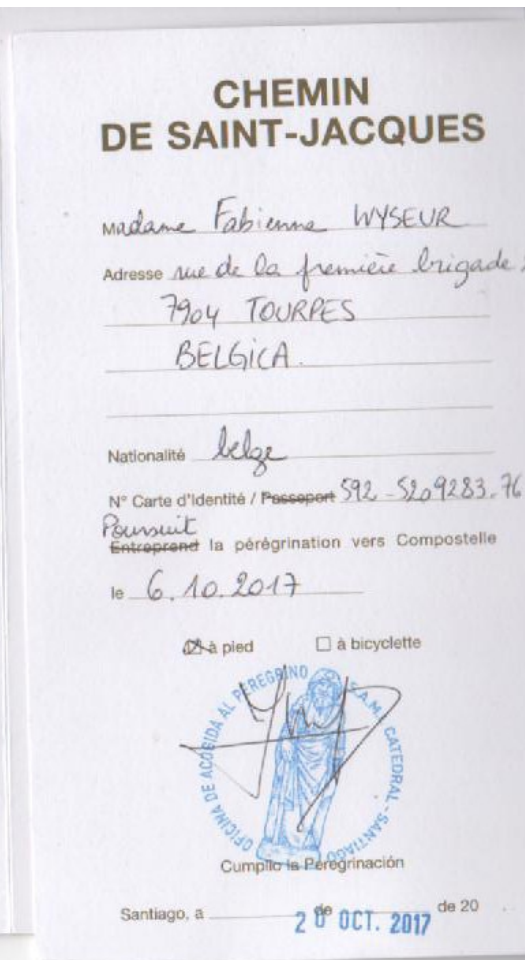 CHEMIN
DE SAINT-JACQUES
Madame Fabienne WYSEUR
Adresse rue de la première brigade
7904 TOURPES
BELGICA.
Nationalité belge
N° Carte d'Identité / Passeport 592-5209283.76
Poursuit
Entreprend la pérégrination vers Compostelle
le 6.10.2017
à pied à bicyclette
OFICINA DE ACOGIDA AL PEREGRINO S.A.M. CATEDRAL - SANTIAGO
Cumplio la Peregrinación
Santiago, a de de 20
20 OCT. 2017